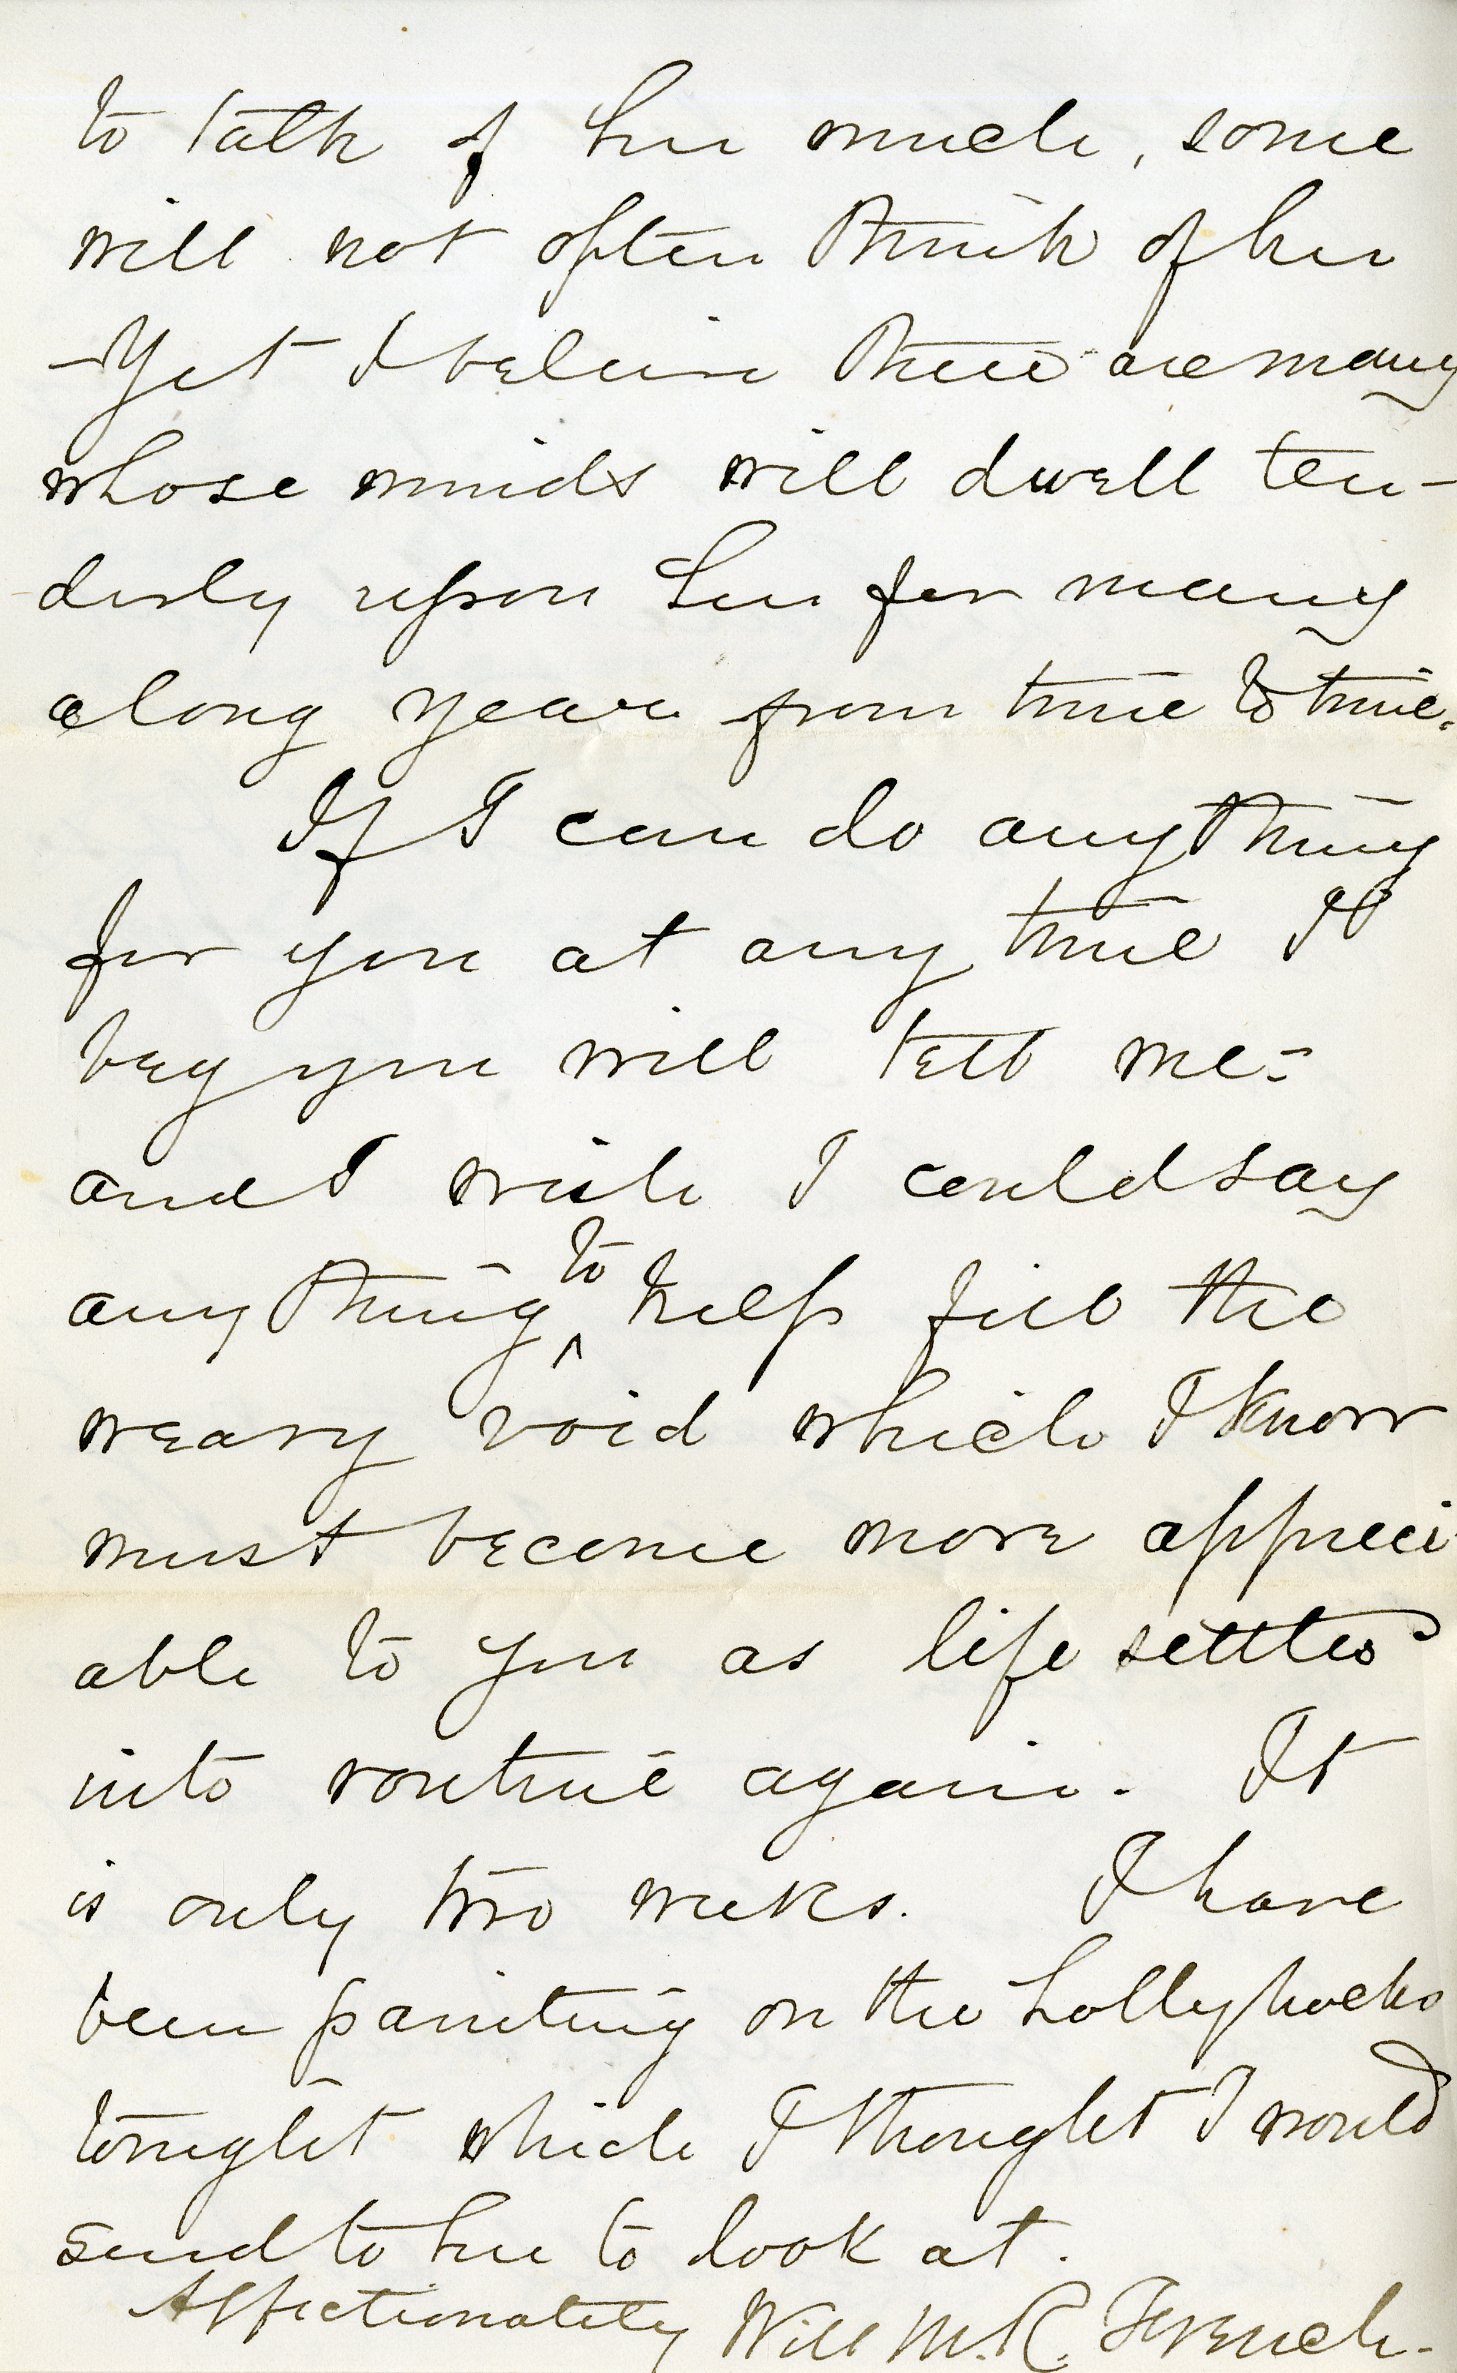 to talk of her much, some
will not often think of her
-Yet I believe there are many
whose minds will dwell ten-
derly upon her for many
a long year from time to time.
If I can do anything
for you at any time I
beg you will tell me-
and I wish I could say
anything to help fill the
weary void which I know
must become more appreci
able to you as life settles
into routine again. It
is only two weeks. I have
been painting on the hollyhocks
tonight which I thought I would
send to her to look at.
Affectionately Will M. R. French-